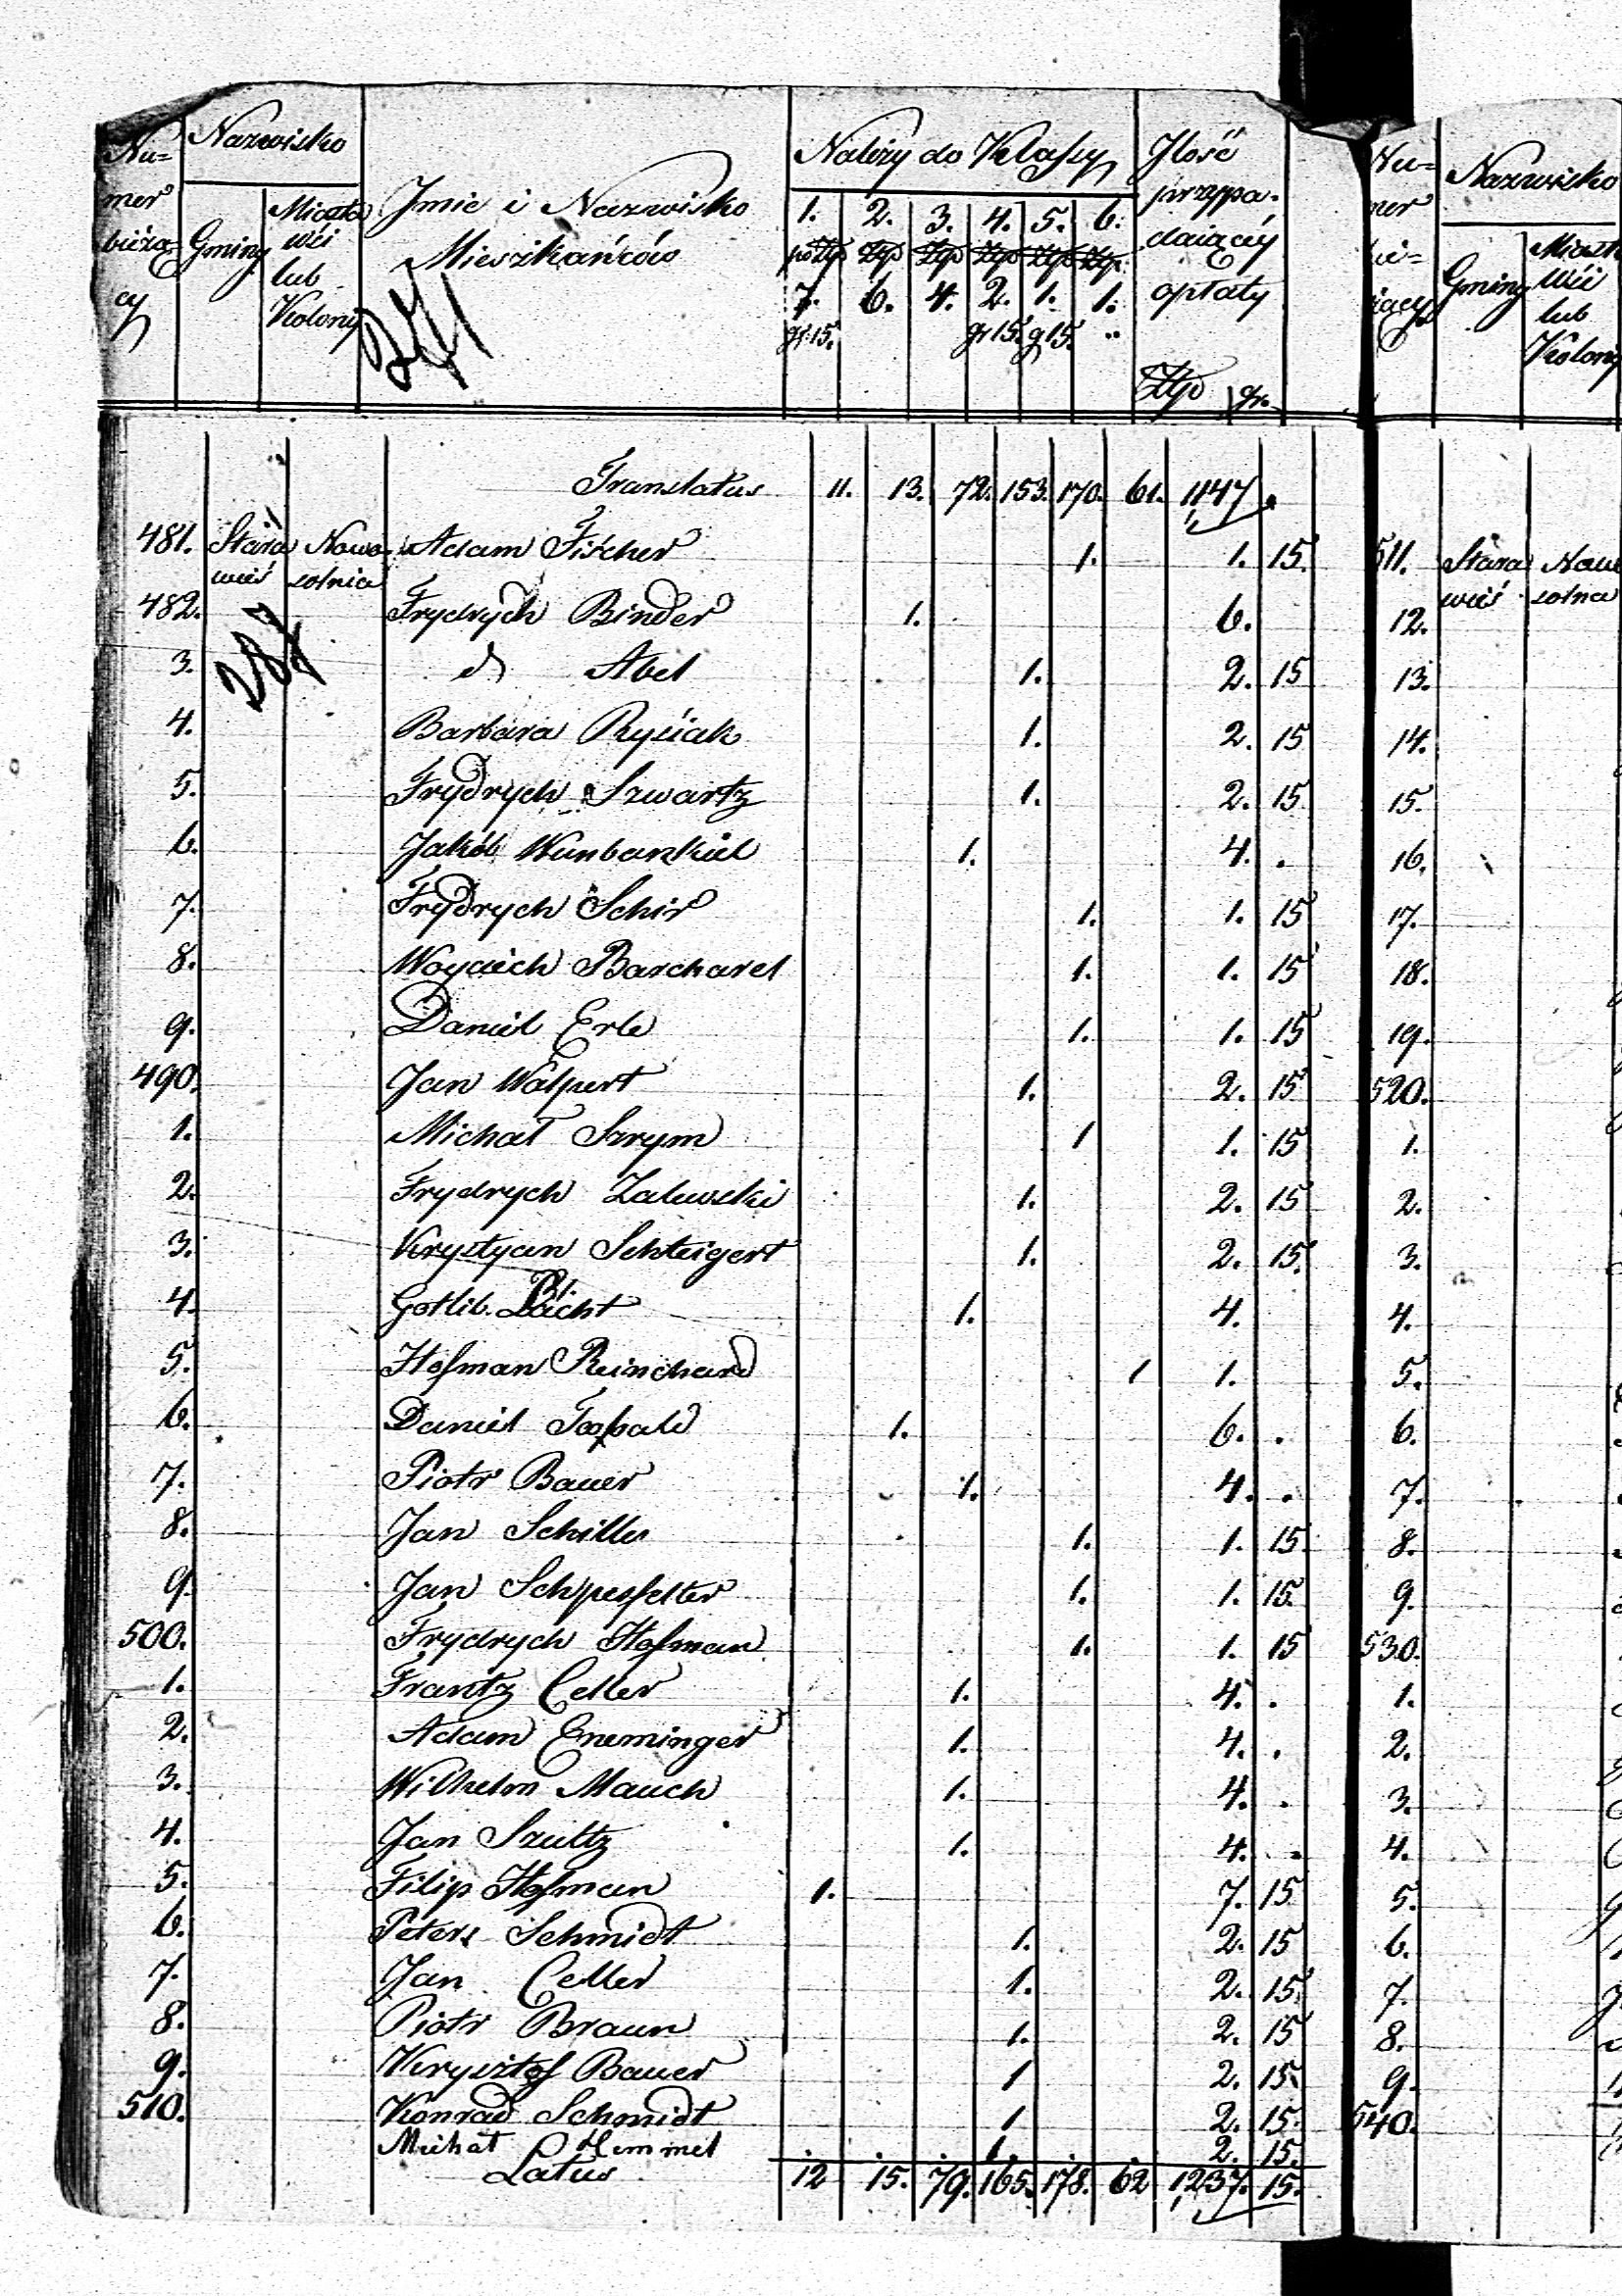 Numer bieżący Nazwisko Gminy Miasta wśi lub Kolony Jmie i Nazwisko Mieszkańców Należy do Klassy Jlość przypadaiącéy opłaty
1. 2. 3. 4. 5. 6.
po Złp Złp Złp Złp Złp Złp
7. 6. 4. 2. 1. 1.
gr 15. gr 15. g 15. ..
Złp gr.
Translatus 11. 13. 72. 153. 170. 61. 1147 .
481. Stara wieś Nowo solnia Adam Fischer 1. 1. 15.
482. Frydrych Binder 1. 6.
3. d Abel 1. 2. 15
4. Barbara Rysiak 1. 2. 15
5. Frydrych Szwartz 1. 2. 15
6. Jakób 1. 4. .
7. Frydrych Schir 1. 1. 15
8. Woyciech Barchard 1. 1. 15
9. Daniel Erle 1. 1. 15
490. Jan Walpert 1. 2. 15
1. Michał Szrym 1 1. 15
2. Frydrych Zalewski 1. 2. 15
3. Krystyan Schteigert 1. 2. 15.
4. Gotlib. 1. 4.
5. Hofman Reinchard 1 1.
6. Daniel 1. 6. .
7. Piotr Bauer 1. 4. .
8. Jan Schiller 1. 1. 15
9. Jan 1. 1. 15
500. Frydrych Hofman 1. 1. 15
1. Frantz Celler 1. 4. .
2. Adam Eneminger 1. 4. .
3. Wilhelm Mauch 1. 4. .
4. Jan Szultz 1. 4. .
5. Filip Hofman 1. 7. 15
6. Peter Schmidt 1. 2. 15
7. Jan Celler 1. 2. 15
8. Piotr Braun 1. 2. 15
9. Krysztof Bauer 1 2. 15
510. Konrad Schmidt 1 2. 15.
Michał Hemmel 1. 2. 15.
Latus 12 15. 79. 165. 178. 62 1,237. 15.
Numer bieżący Nazwisko
Gminy wśi lub Kolony
511. Stara wieś
12.
13.
14.
15.
16.
17.
18.
19.
520.
1.
2.
3.
4.
5.
6.
7.
8.
9.
530.
1.
2.
3.
4.
5.
6.
7.
8.
9.
540.